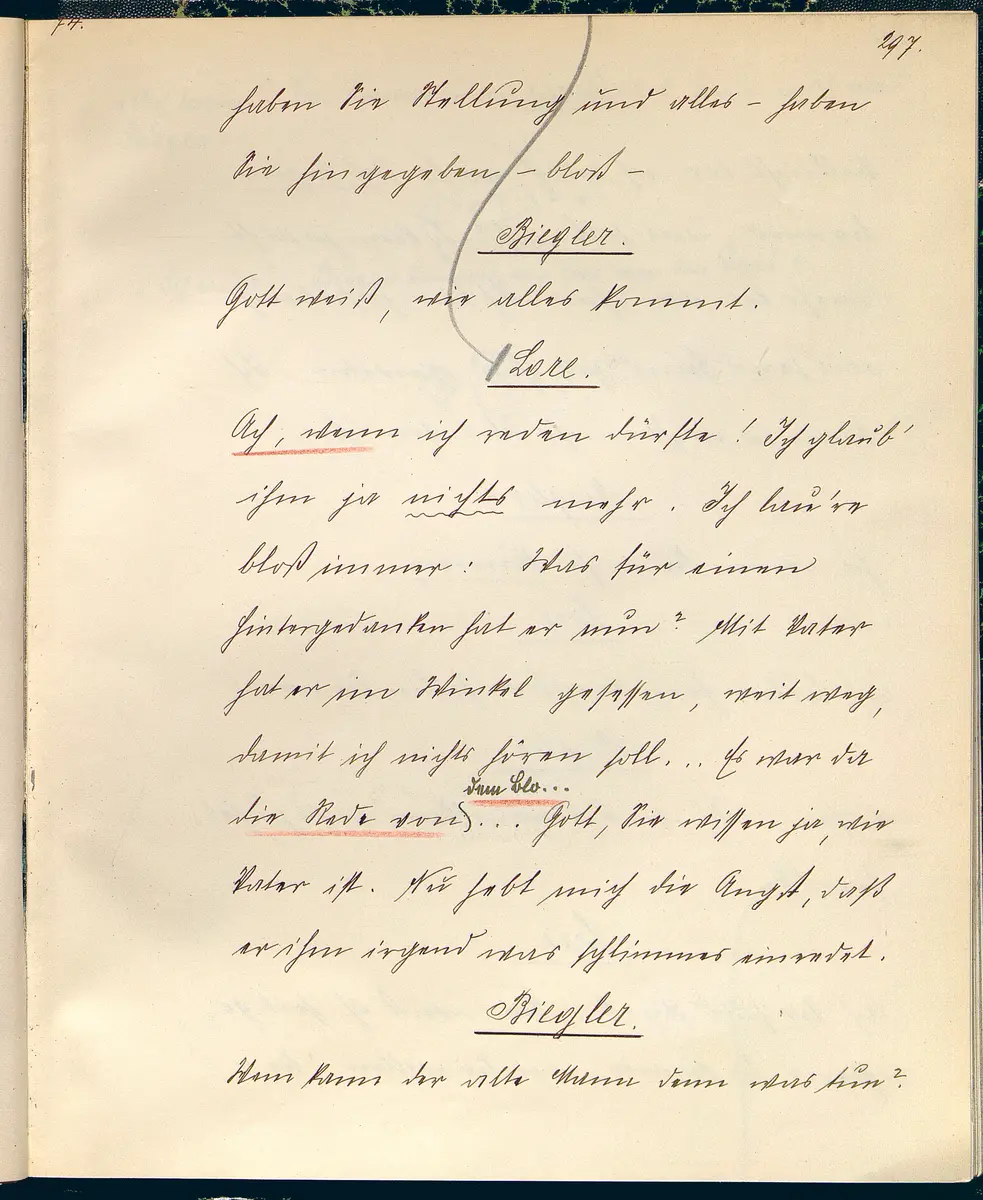 74.
297.
haben Sie Stellung und alles – haben
Sie hingegeben – bloß –
Biegler.
Gott weiß, wie alles kommt.
Lore.
Ach, wenn ich reden dürfte! Ich glaub'
ihm ja nichts mehr. Ich lau're
bloß immer: Was für einen
Hintergedanken hat er nun? Mit Vater
hat er im Winkel gesessen, weit weg,
damit ich nichts hören soll... Es war da
dem Blo...
die Rede von)... Gott, Sie wissen ja, wie
Vater ist. Nu hebt mich die Angst, daß
er ihm irgend was schlimmes einredet.
Biegler.
Wem kann der alte Mann denn was tun?